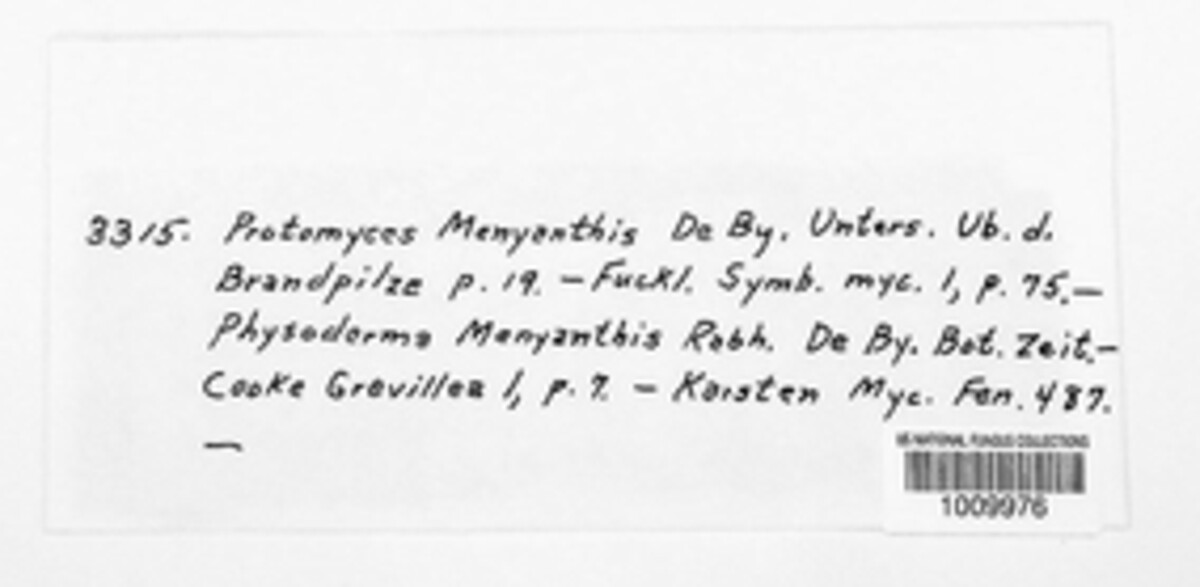 3315. Protomyces Menyanthis De By. Unters. Ub. d.
Brandpilze p. 19. – Fuckl. Symb. myc. 1, p. 75. –
Physoderma Menyanthis Rabh. De By. Bot. Zeit. –
Cooke Grevillea 1, p. 7. – Karsten Myc. Fen. 487.
—
US NATIONAL FUNGUS COLLECTIONS
1009976